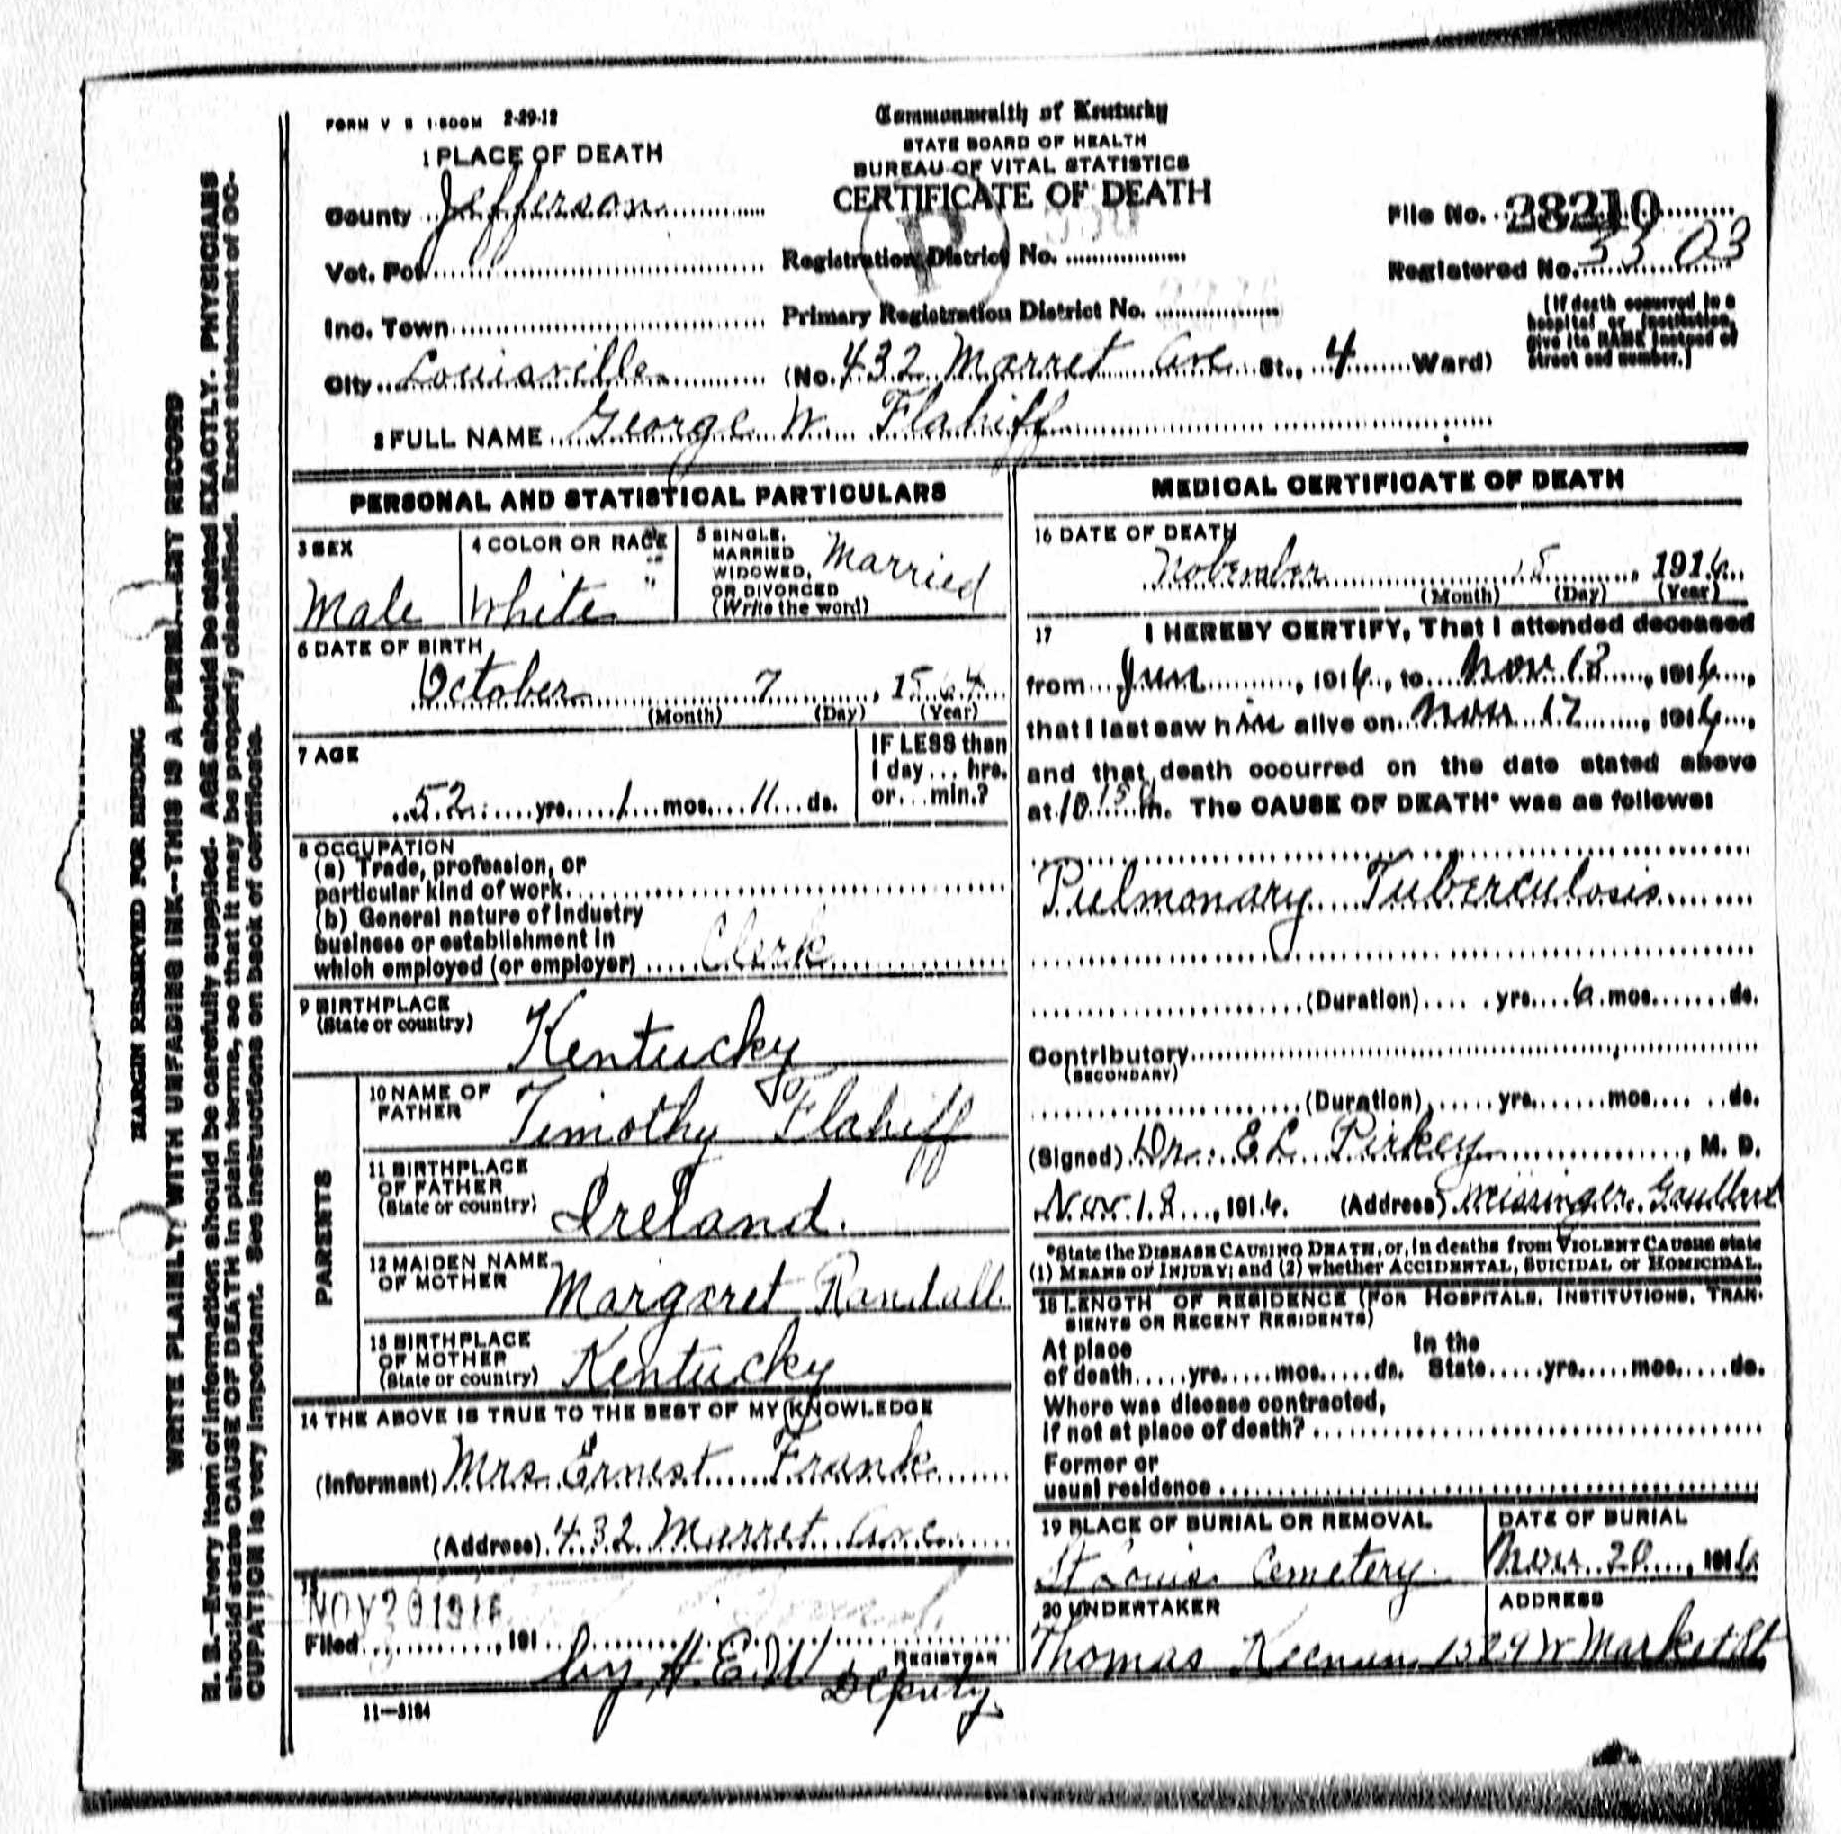 FORM V S 1-500M 2-29-12
Commonwealth of Kentucky
STATE BOARD OF HEALTH
BUREAU OF VITAL STATISTICS
CERTIFICATE OF DEATH
1 PLACE OF DEATH
County Jefferson
Vot. Pct.
Inc. Town
City Louisville (No. 432 Marret Ave St., 4 Ward)
Registration District No.
Primary Registration District No.
File No. 28210
Registered No. 3303
(If death occurred in a hospital or institution, give its NAME instead of street and number.)
2 FULL NAME George W Flahiff
PERSONAL AND STATISTICAL PARTICULARS
3 SEX
Male
4 COLOR OR RACE
White
5 SINGLE, MARRIED WIDOWED, OR DIVORCED (Write the word)
Married
6 DATE OF BIRTH
October 7, 1864
(Month) (Day) (Year)
7 AGE
52 yrs. 1 mos. 11 ds.
IF LESS than 1 day... hrs. or... min.?
8 OCCUPATION
(a) Trade, profession, or
particular kind of work
(b) General nature of industry
business or establishment in
which employed (or employer) Clerk
9 BIRTHPLACE
(State or country) Kentucky
PARENTS
10 NAME OF FATHER Timothy Flahiff
11 BIRTHPLACE OF FATHER (State or country) Ireland.
12 MAIDEN NAME OF MOTHER Margaret Randall
13 BIRTHPLACE OF MOTHER (State or country) Kentucky
14 THE ABOVE IS TRUE TO THE BEST OF MY KNOWLEDGE
(Informant) Mrs Ernest Frank
(Address) 432 Marret Ave
15
NOV 20 1916
Filed, 191
by H.E.W REGISTRAR
Deputy
11—3184
MEDICAL CERTIFICATE OF DEATH
16 DATE OF DEATH
November 1916
(Month) (Day) (Year)
17 I HEREBY CERTIFY, That I attended deceased
from Jun, 1916, to Nov 18, 1916,
that I last saw him alive on Nov 17, 1916,
and that death occurred on the date stated above
at 10 m. The CAUSE OF DEATH* was as follows:
Pulmonary Tuberculosis
(Duration) yrs. 6 mos. ds.
Contributory
(SECONDARY)
(Duration) yrs. mos. ds.
(Signed) Dr. E L Pirkey, M. D.
Nov. 18, 1916. (Address) Messinger. Gaulbert
*State the DISEASE CAUSING DEATH, or, in deaths from VIOLENT CAUSES state
(1) MEANS OF INJURY; and (2) whether ACCIDENTAL, SUICIDAL or HOMICIDAL.
18 LENGTH OF RESIDENCE (FOR HOSPITALS, INSTITUTIONS, TRAN-
SIENTS OR RECENT RESIDENTS)
At place of death yrs. mos. ds. In the State yrs. mos. ds.
Where was disease contracted,
if not at place of death?
Former or
usual residence
19 PLACE OF BURIAL OR REMOVAL
St Louis Cemetery
DATE OF BURIAL
Nov 20, 1916
20 UNDERTAKER
Thomas Keenan
ADDRESS
1529 W Market St
MARGIN RESERVED FOR BINDING
WRITE PLAINLY, WITH UNFADING INK--THIS IS A PERMANENT RECORD
N. B.—Every item of information should be carefully supplied. AGE should be stated EXACTLY. PHYSICIANS
should state CAUSE OF DEATH in plain terms, so that it may be properly classified. Exact statement of OC-
CUPATION is very important. See instructions on back of certificate.